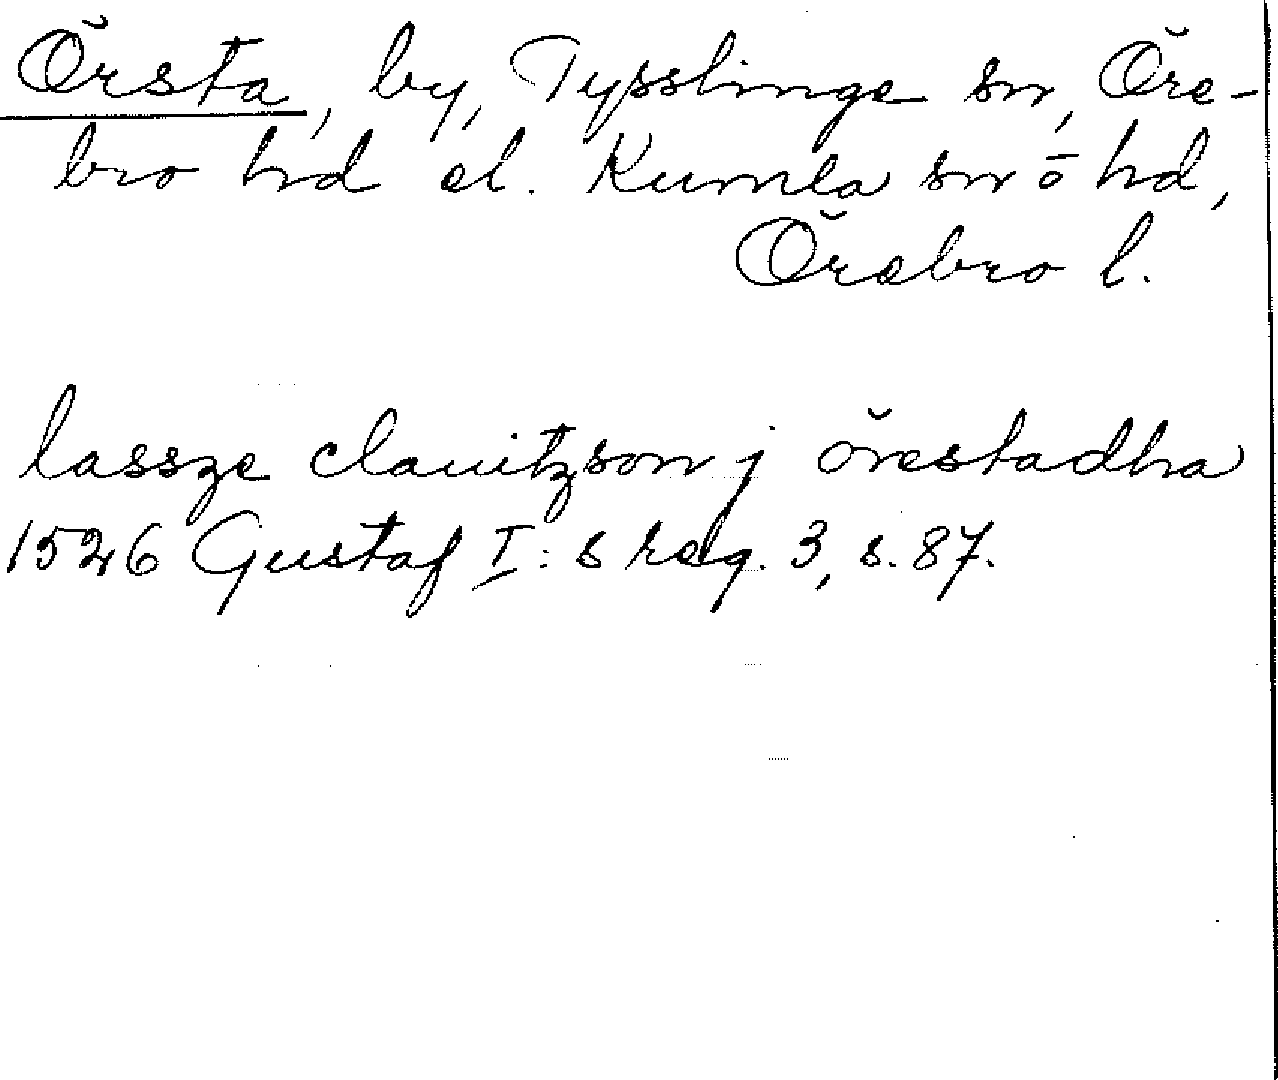 Örsta, by, Tysslinge sn, Öre-
bro hd el. Kumla sn o hd,
Örebro l.
lassze clauitzson j örestadha
1526 Gustaf I:s reg. 3, s. 87.